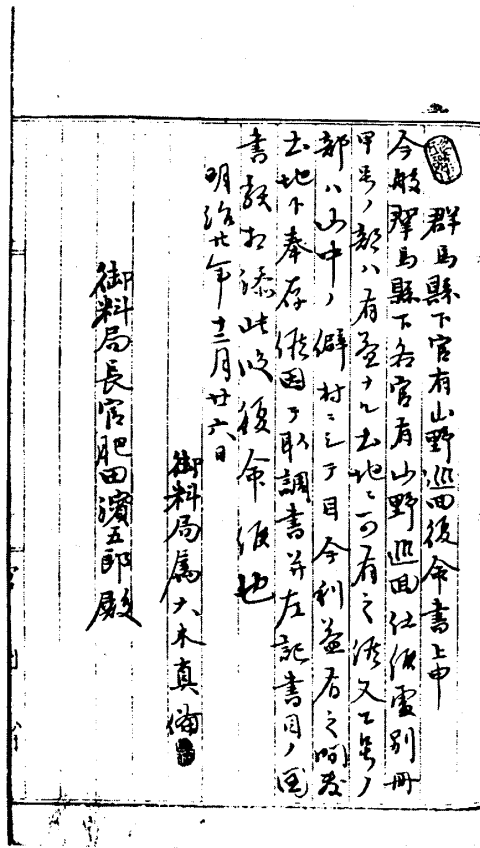 群馬縣下官有山野巡回復命書上申
今般群馬縣下各官有山野巡回仕候處別冊
甲号ノ部ハ有益ナル土地ニ可有之候又乙号ノ
部ハ山中ノ僻村ニシテ目今利益有之間敷
土地ト奉存候因テ取調書并左記書目ノ図
書類相添此段復命候也
明治廿年十二月廿六日
御料局属大木真備
御料局長官肥田濱五郎殿